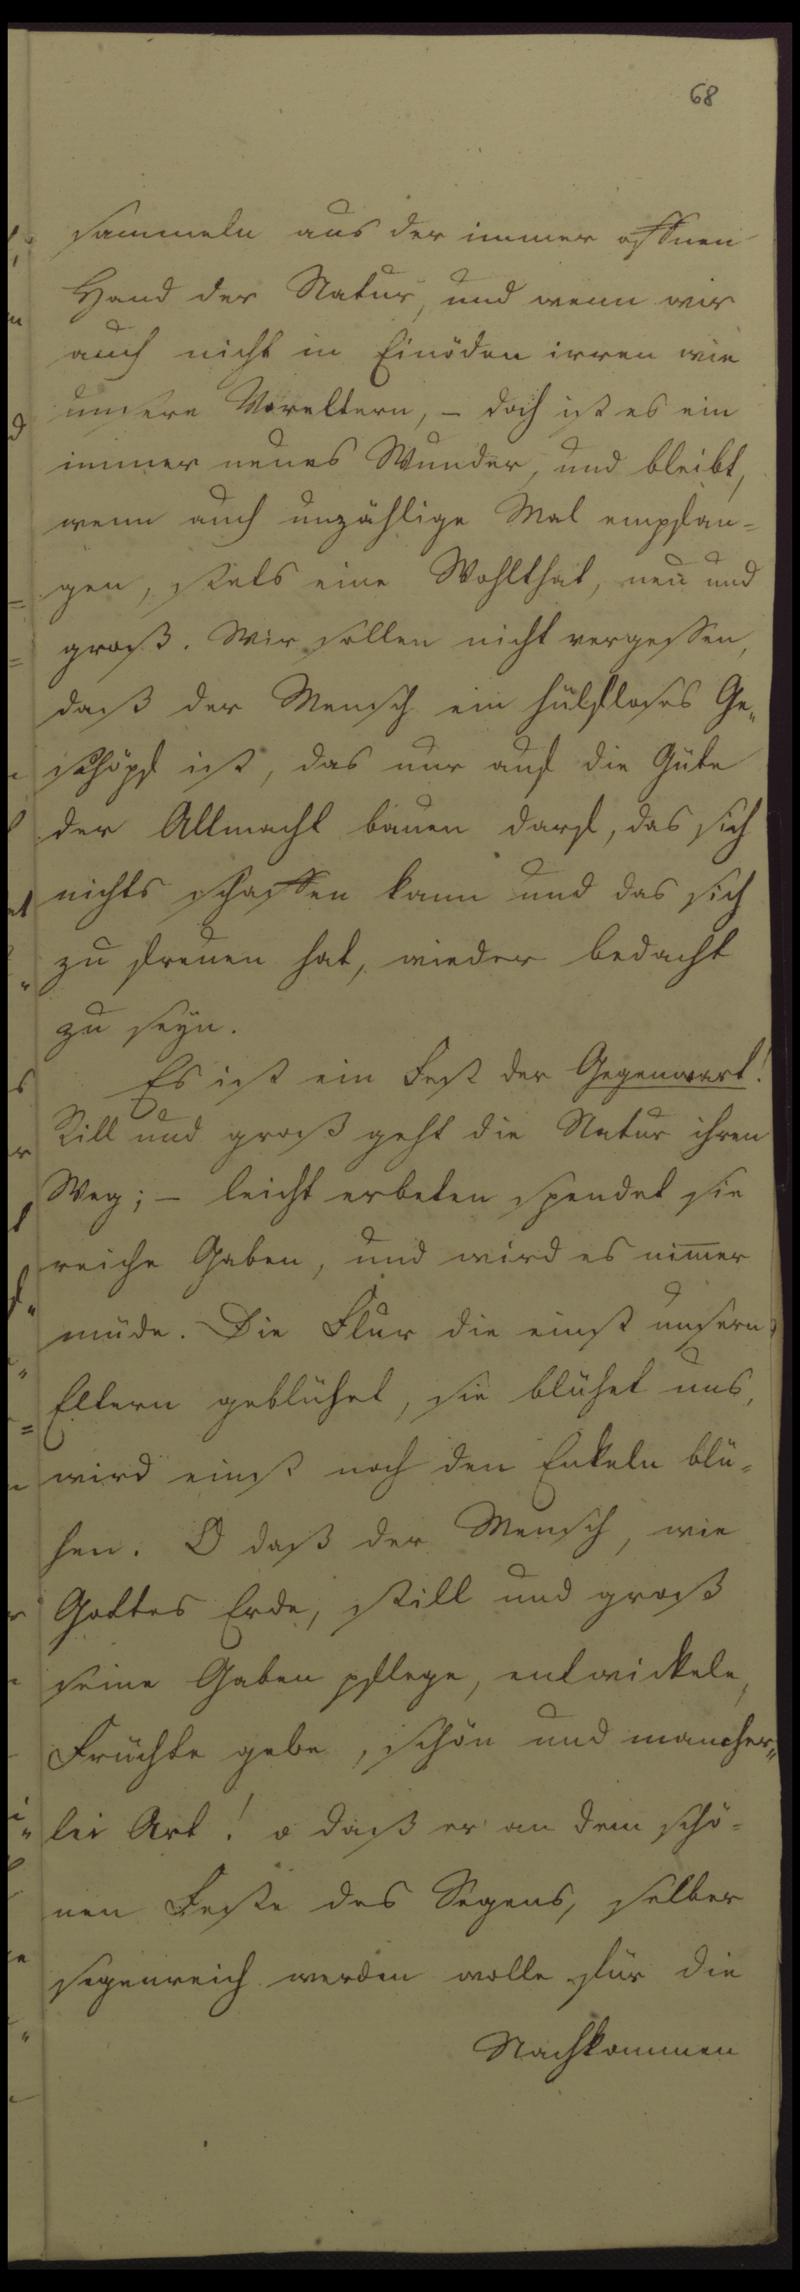 68
sammeln aus der immer offnen
Hand der Natur, und wenn wir
auch nicht in Einöden irren wie
unsere Voreltern, – doch ist es ein
immer neues Wunder, und bleibt,
wenn auch unzählige Mal empfan=
gen, stets eine Wohlthat, neu und
groß. Wir sollen nicht vergessen,
daß der Mensch ein hülfloses Ge„
schöpf ist, das nur auf die Güte
der Allmacht bauen darf, das sich
nichts schaffen kann und das sich
zu freuen hat, wieder bedacht
zu seyn.
Es ist ein Fest der Gegenwart!
Still und groß geht die Natur ihren
Weg; – leicht erbeten spendet sie
reiche Gaben, und wird es nim̅er
müde. Die Flur die einst unsern
Eltern geblühet, sie blühet uns,
wird einst noch den Enkeln blü=
hen. O daß der Mensch, wie
Gottes Erde, still und groß
seine Gaben pflege, entwickele,
Früchte gebe, schön und mancher„
lei Art! o daß er an dem schö=
nen Feste des Segens, selber
segenreich werden wolle für die
Nachkommen